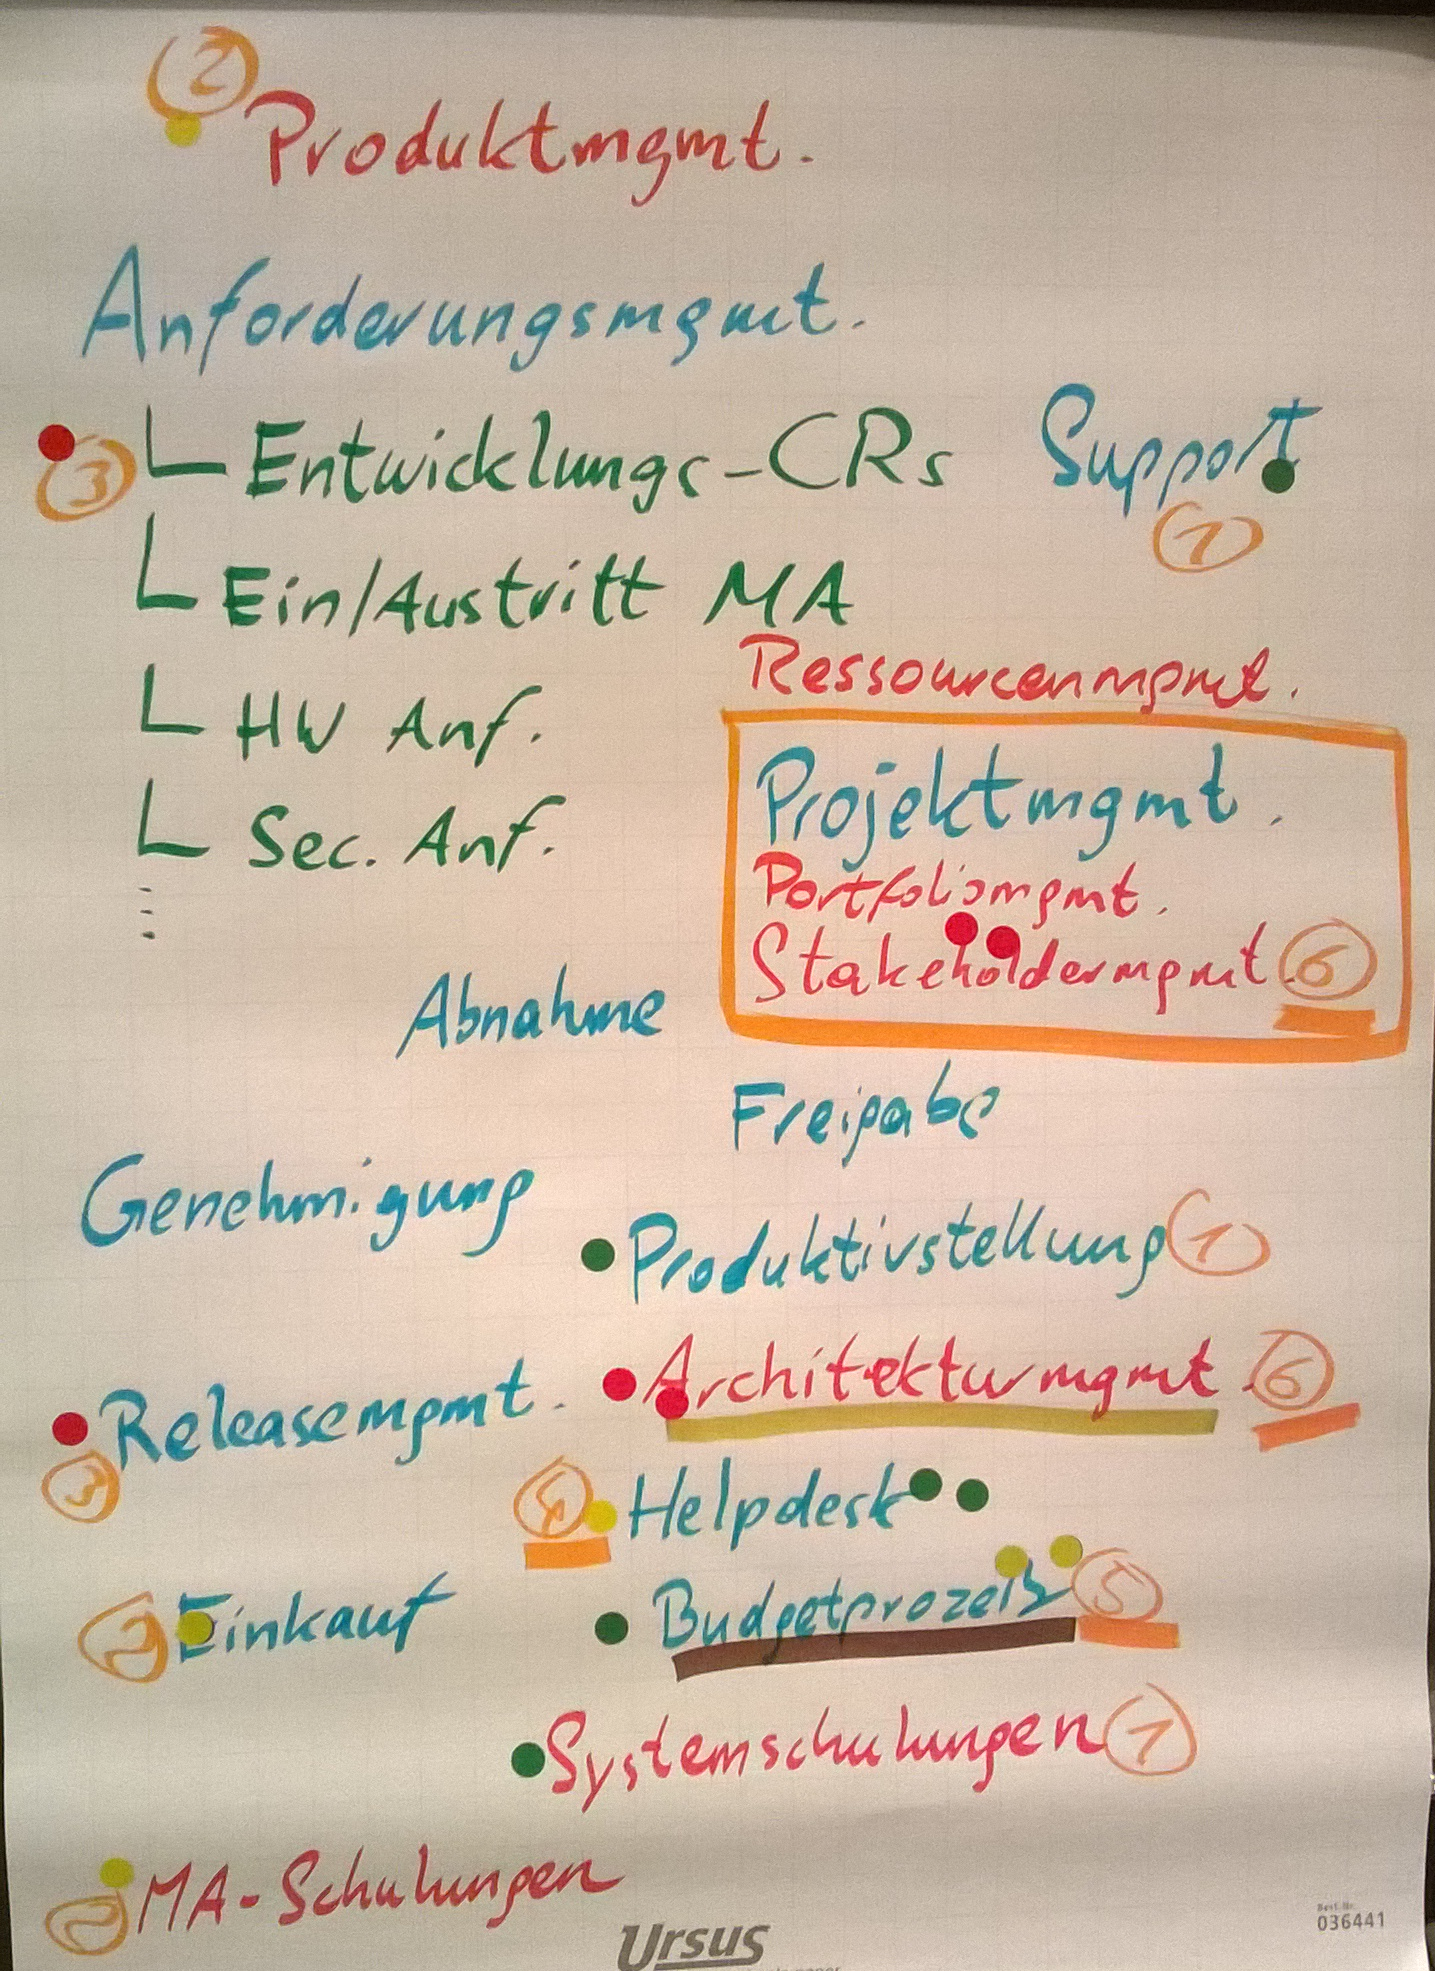 2
Produktmgmt.
Anforderungsmgmt.
3 Entwicklungs-CRs
Support
1
Ein/Austritt MA
Ressourcenmgmt.
HW Anf.
Projektmgmt.
Sec. Anf.
Portfoliomgmt.
Stakeholdermgmt. 6
Abnahme
Freigabe
Genehmigung
Produktivstellung 1
Architekturmgmt. 6
Releasemgmt.
3
4 Helpdesk
Budgetprozeß 5
2 Einkauf
Systemschulungen 1
2 MA-Schulungen
Ursus
Best.-Nr.
036441